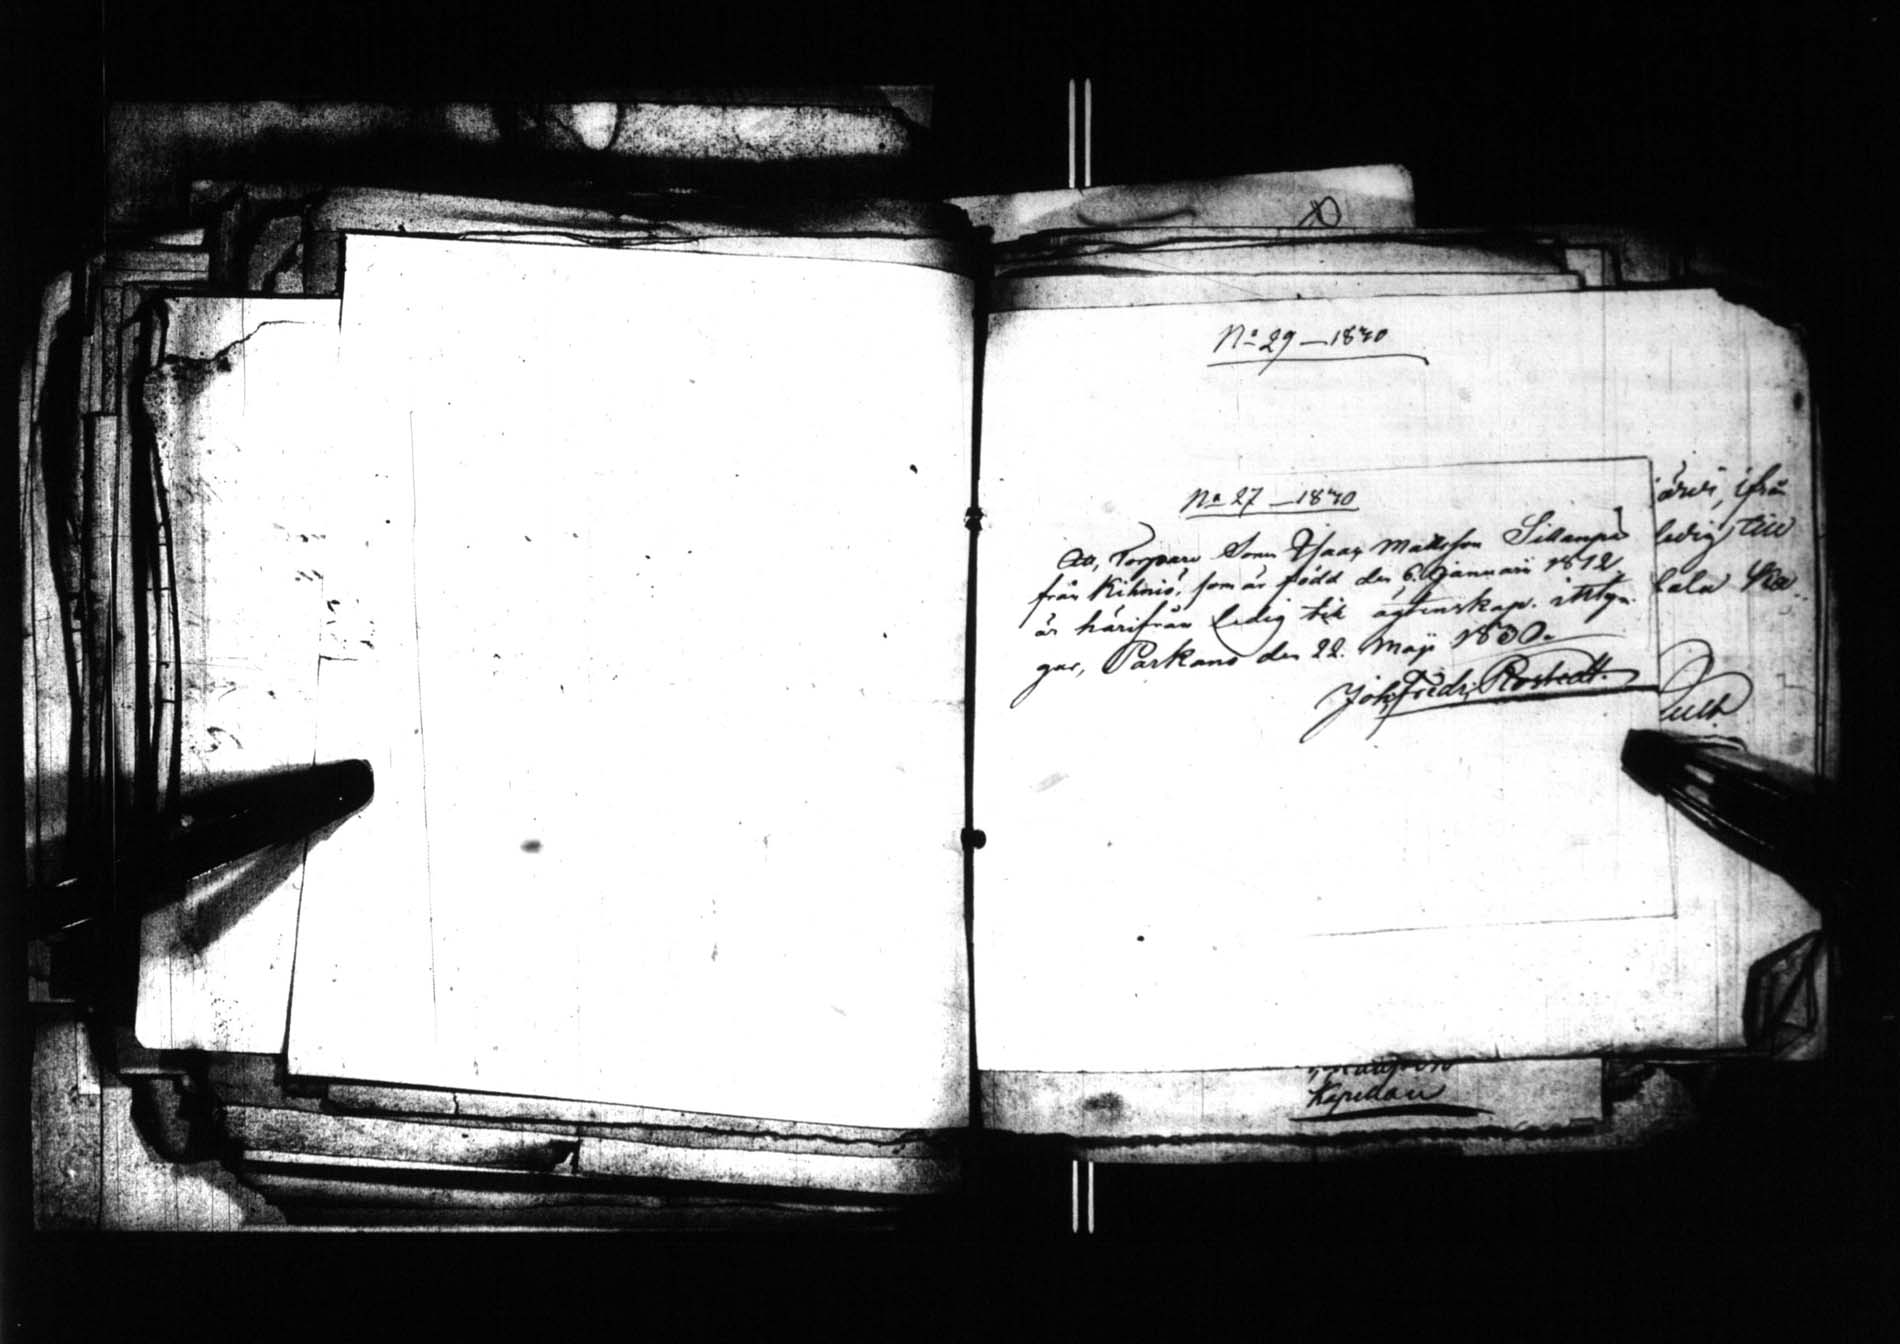 No 29 — 1840
No 27 — 1840
Att, Torpare Sonen Isaac Mattsson Sillanpää
från Kihniö, som är född den 6. Januarii 1812,
är härifrån ledig till ägtenskap. intyg-
gar, Parkano den 22. Maji 1830.
Joh, Fredr; Rostedt.
ifrån
ledig till
Kapellan